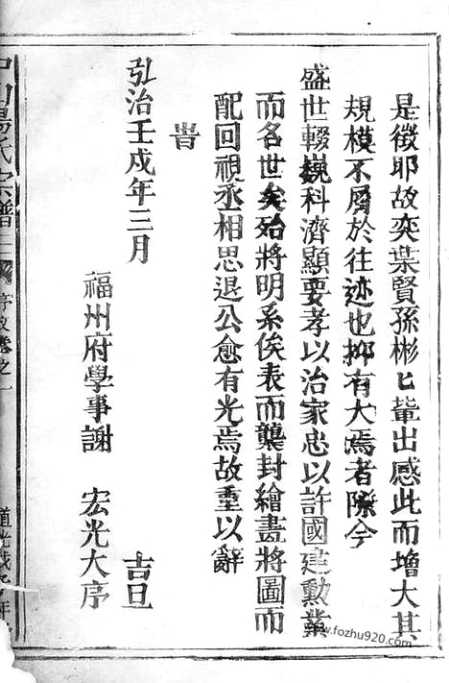 是徵耶故奕葉賢孫彬匕輩出感此而增大其
規模不屑於往迹也抑有大焉者際今
盛世輟巍科濟顯要孝以治家忠以許國建勲業
而名世矣殆將明系俟表而襲封繪畫將圖而
配回視丞相思退公愈有光焉故重以辭
旹
弘治壬戌年三月 吉旦
福州府學事謝 宏光大序
中山湯氏宗譜 序文卷之一 道光戊子年
www.fozhu920.com